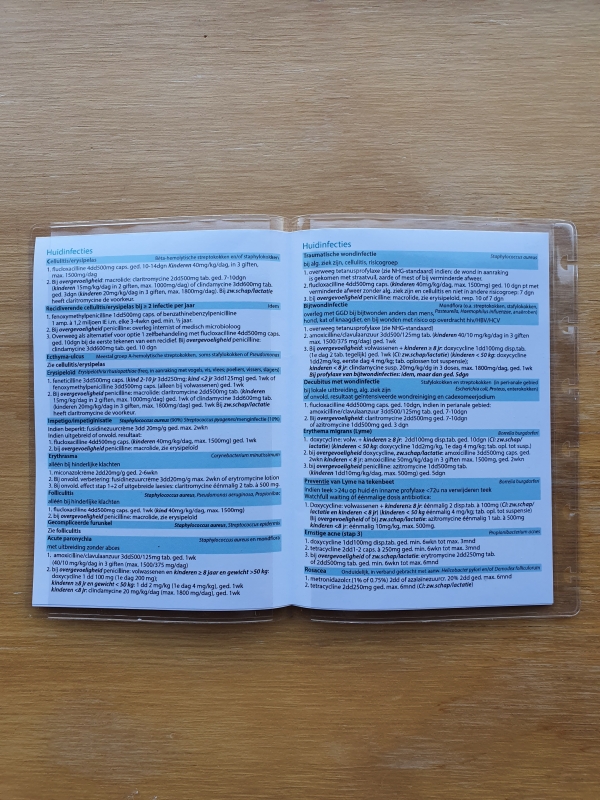 Huidinfecties
Cellulitis/erysipelas Bèta-hemolytische streptokokken en/of stafylokokken
1. flucloxacilline 4dd500mg caps. ged. 10-14dgn Kinderen 40mg/kg/dag, in 3 giften,
max. 1500mg/dag
2. Bij overgevoeligheid: macrolide: claritromycine 2dd500mg tab. ged. 7-10dgn
(kinderen 15mg/kg/dag in 2 giften, max. 1000mg/dag) of clindamycine 3dd600mg tab.
ged. 3dgn (kinderen 20mg/kg/dag in 3 giften, max. 1800mg/dag). Bij zw.schap/lactatie
heeft claritromycine de voorkeur.
Recidiverende cellulitis/erysipelas bij ≥ 2 infectie per jaar Idem
1. fenoxymethylpenicilline 1dd500mg caps. of benzathinebenzylpenicilline
1 amp. à 1,2 miljoen IE i.m. elke 3-4wkn ged. min. ½ jaar.
2. Bij overgevoeligheid penicilline: overleg internist of medisch microbioloog
3. Overweeg als alternatief voor optie 1 zelfbehandeling met flucloxacilline 4dd500mg caps.
ged. 10dgn bij de eerste tekenen van een recidief. Bij overgevoeligheid penicilline:
clindamycine 3dd600mg tab. ged. 10 dgn
Ecthyma-ulcus Meestal groep A-hemolytische streptokokken, soms stafylokokken of Pseudomonas
Zie cellulitis/erysipelas
Erysipeloïd Erysipelothrix rhusiopathiae (freq. in aanraking met vogels, vis, vlees; poeliers, vissers, slagers)
1. feneticilline 3dd500mg caps. (kind 2-10 jr 3dd250mg; kind <2 jr 3dd125mg) ged. 1wk of
fenoxymethylpenicilline 3dd500mg caps. (alleen bij volwassenen) ged. 1wk
2. Bij overgevoeligheid penicilline: macrolide: claritromycine 2dd500mg tab. (kinderen
15mg/kg/dag in 2 giften, max. 1000mg/dag) ged. 1wk of clindamycine 3dd600mg tab.
(kinderen 20mg/kg/dag in 3 giften, max. 1800mg/dag) ged. 1wk. Bij zw.schap/lactatie
heeft claritromycine de voorkeur
Impetigo/impetiginisatie Staphylococcus aureus (90%) Streptococcus pyogenes/menginfectie (10%)
Indien beperkt: fusidinezuurcrème 3dd 20mg/g ged. max. 2wkn
Indien uitgebreid of onvold. resultaat:
1. flucloxacilline 4dd500mg caps. (kinderen 40mg/kg/dag, max. 1500mg) ged. 1wk
2. bij overgevoeligheid penicilline: macrolide, zie erysipeloïd
Erythrasma Corynebacterium minutissimum
alléén bij hinderlijke klachten
1. miconazolcrème 2dd20mg/g ged. 2-6wkn
2. Bij onvold. verbetering: fusidinezuurcrème 3dd20mg/g ged. max. 2wkn of erytromycine lotion
3. Bij onvold. effect stap 1+2 of uitgebreide laesies: claritromycine éénmalig 2 tab. à 500 mg.
Folliculitis Staphylococcus aureus, Pseudomonas aeruginosa, Propionibac
alléén bij hinderlijke klachten
1. flucloxacilline 4dd500mg caps. ged. 1wk (kind max. 1500mg)
2. bij overgevoeligheid penicilline: macrolide, zie erysipeloïd
Gecompliceerde furunkel Staphylococcus aureus, Streptococcus epidermis
Zie folliculitis
Acute paronychia Staphylococcus aureus en mondflora
met uitbreiding zonder abces
1. amoxicilline/clavulaanzuur 3dd500/125mg tab. ged. 1wk
(40/10 mg/kg/dag in 3 giften (max. 1500/375 mg/dag)
2. bij overgevoeligheid penicilline: volwassenen en kinderen ≥ 8 jaar en gewicht >50 kg:
doxycycline 1 dd 100 mg (1e dag 200 mg);
kinderen ≥8 jr en gewicht < 50 kg: 1 dd 2 mg/kg (1e dag 4 mg/kg), ged. 1wk
kinderen <8 jr: clindamycine 20 mg/kg/dag (max. 1800 mg/dag), ged. 1wk
Huidinfecties
Traumatische wondinfectie Staphylococcus aureus
bij alg. ziek zijn, cellulitis, risicogroep
1. overweeg tetanusprofylaxe (zie NHG-standaard) indien: de wond in aanraking
is gekomen met straatvuil, aarde of mest of bij verminderde afweer.
2. flucloxacilline 4dd500mg caps. (kinderen 40mg/kg/dag, max. 1500mg) ged. 10 dgn of met
verminderde afweer zonder alg. ziek zijn en cellulitis en niet in andere risicogroep: 7 dgn
3. bij overgevoeligheid penicilline: macrolide, zie erysipeloïd, resp. 10 of 7 dgn
Bijtwondinfectie Mondflora (o.a. streptokokken, stafylokokken,
overleg met GGD bij bijtwonden anders dan mens, Pasteurella, Haemophilus influenzae, anaëroben)
hond, kat of knaagdier, en bij wonden met risico op overdracht hiv/HBV/HCV
1. overweeg tetanusprofylaxe (zie NHG-standaard)
2. amoxicilline/clavulaanzuur 3dd500/125mg tab. ged. 1wk (kinderen 40/10 mg/kg/dag in 3 giften
max. 1500/375 mg/dag) ged. 1wk
3. Bij overgevoeligheid: volwassenen + kinderen ≥ 8 jr: doxycycline 1dd100mg disp.tab.
(1e dag 2 tab. tegelijk) ged. 1wk (CI: zw.schap/lactatie) (kinderen < 50 kg: doxycycline
1dd2mg/kg, eerste dag 4 mg/kg; tab. oplossen tot suspensie);
kinderen < 8 jr: clindamycine susp. 20mg/kg/dag in 3 doses, max. 1800mg/dag, ged. 1wk
Bij profylaxe van bijtwondinfecties: idem, maar dan ged. 5dgn
Decubitus met wondinfectie Stafylokokken en streptokokken (in peri-anale gebied:
bij lokale uitbreiding, alg. ziek zijn Escherichia coli, Proteus, enterokokken)
of onvold. resultaat geïntensiveerde wondreiniging en cadexomeerjodium
1. flucloxacilline 4dd500mg caps. ged. 10dgn, indien in perianale gebied:
amoxicilline/clavulaanzuur 3dd500/125mg tab. ged. 7-10dgn
2. Bij overgevoeligheid: claritromycine 2dd500mg ged. 7-10dgn
of azitromycine 1dd500mg ged. 3 dgn
Erythema migrans (Lyme) Borrelia burgdorferi
1. doxycycline: volw. + kinderen ≥ 8 jr: 2dd100mg disp.tab. ged. 10dgn (CI: zw.schap/
lactatie) (kinderen < 50 kg: doxycycline 1dd2mg/kg, 1e dag 4 mg/kg; tab. opl. tot susp.)
2. bij overgevoeligheid doxycycline, zw.schap/lactatie: amoxicilline 3dd500mg caps. ged.
2wkn kinderen < 8 jr: amoxicilline 50mg/kg/dag in 3 giften max. 1500mg, ged. 2wkn
3. bij overgevoeligheid penicilline: azitromycine 1dd500mg tab.
(kinderen 1dd10mg/kg/dag, max. 500mg) ged. 5dgn
Preventie van Lyme na tekenbeet Borrelia burgdorferi
Indien teek >24u op huid én inname profylaxe <72u na verwijderen teek
Watchful waiting of éénmalige dosis antibiotica:
1. Doxycycline: volwassenen + kinderen≥ 8 jr: éénmalig 2 disp.tab. à 100mg (CI: zw.schap/
lactatie en kinderen < 8 jr) (kinderen < 50 kg éénmalig 4 mg/kg; tab. opl. tot suspensie)
Bij overgevoeligheid of bij zw.schap/lactatie: azitromycine éénmalig 1 tab. à 500mg
kinderen <8 jaar éénmalig 10mg/kg, max. 500mg.
Ernstige acne (stap 3) Propionibacterium acnes
1. doxycycline 1dd100mg disp.tab. ged. min. 6wkn tot max. 3mnd
2. tetracycline 2dd1-2 caps. à 250mg ged. min. 6wkn tot max. 3mnd
3. bij overgevoeligheid of zw.schap/lactatie: erytromycine 1dd500mg disp.tab
of 2dd500mg ged. min. 6wkn tot max. 6mnd
Rosacea Onduidelijk, in verband gebracht met aanw. Helicobacter pylori en/of Demodex folliculorum
1. metronidazolcr.(1% of 0.75%) 2dd of azelaïnezuurcr. 20% 2dd ged. max. 6mnd
2. tetracycline 2dd250mg ged. max. 6mnd (CI: zw.schap/lactatie)